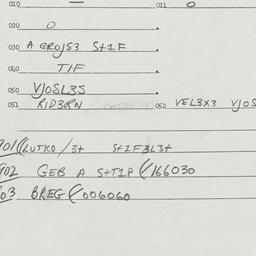 010 — 011 O
020 O
030 A GROJS3 S+1F
040 TIF
050 VJOSL3S
051 RID3RN 052 VEL3X3 VJOS
901 LUTKO/3+ S+2F3L3+
902 GEB A S+T1P (166030
03 BREG (006060